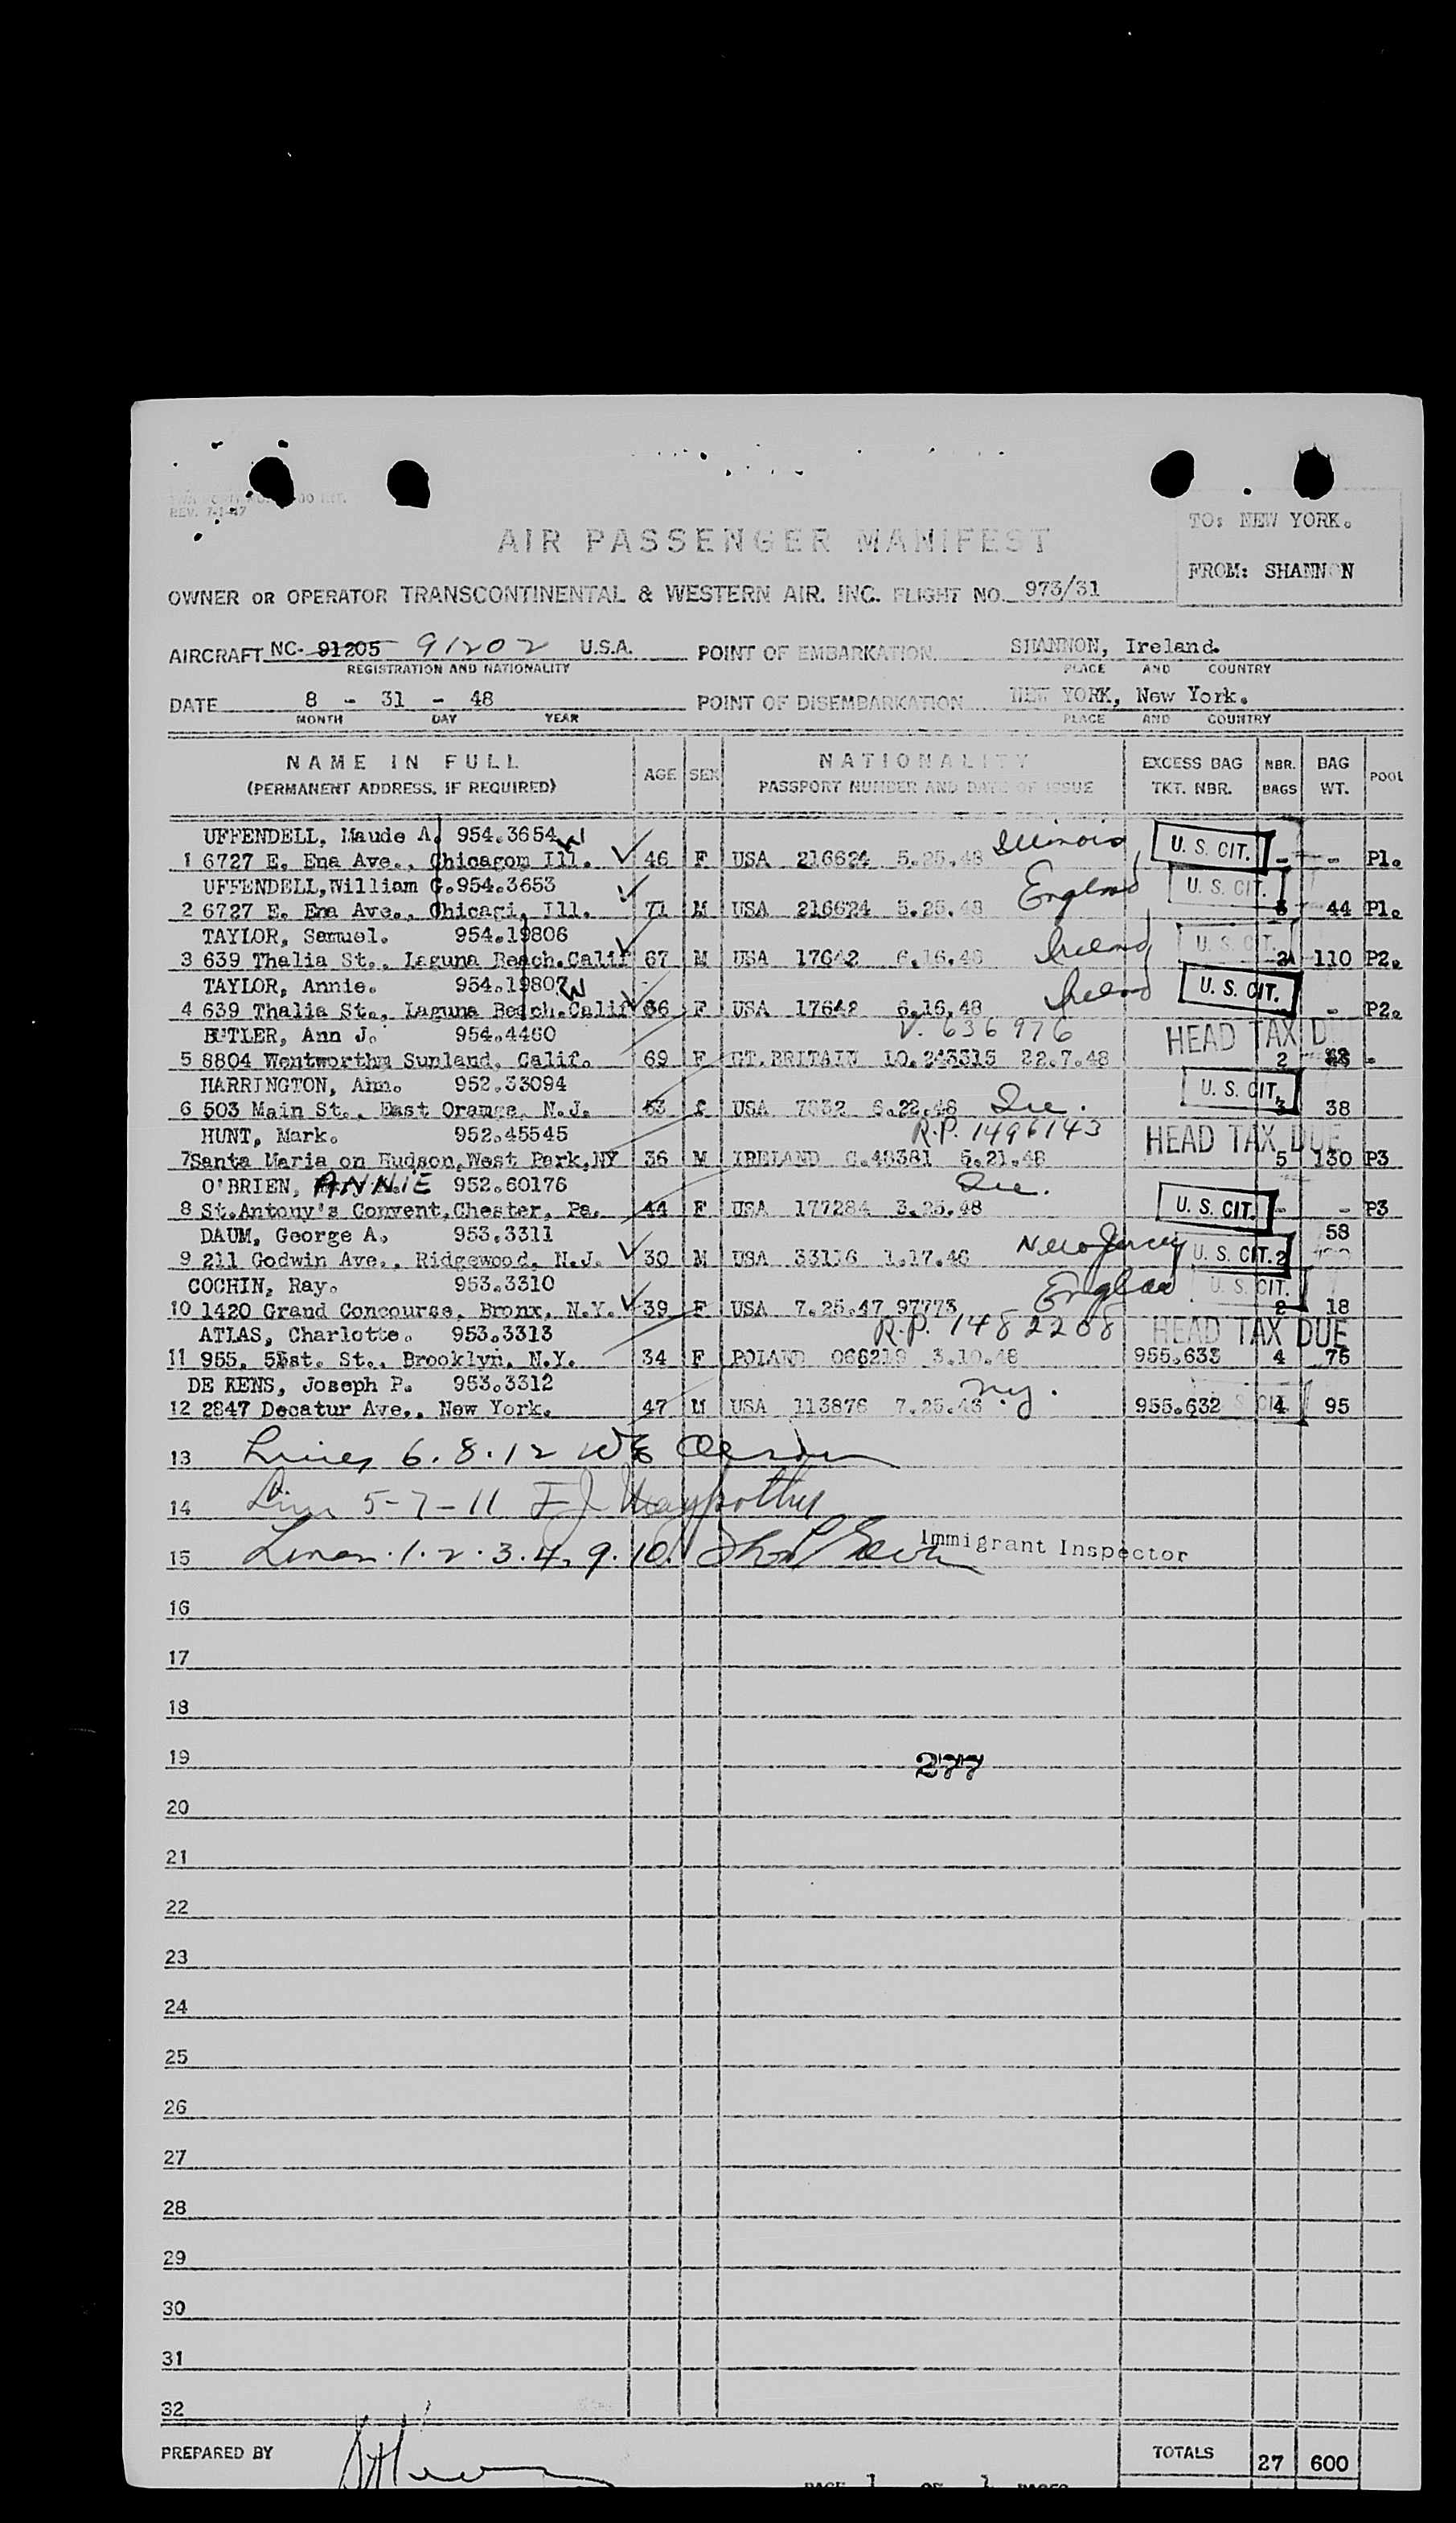 REV. 7-1-47
TO: NEW YORK.
AIR PASSENGER MANIFEST
FROM: SHANNON
OWNER OR OPERATOR TRANSCONTINENTAL & WESTERN AIR. INC. FLIGHT NO. 973/31
AIRCRAFT NC- 91205 91202 U.S.A. POINT OF EMBARKATION SHANNON, Ireland.
REGISTRATION AND NATIONALITY PLACE AND COUNTRY
DATE 8 - 31 - 48 POINT OF DISEMBARKATION NEW YORK, New York.
MONTH DAY YEAR PLACE AND COUNTRY
NAME IN FULL AGE SEX NATIONALITY EXCESS BAG NBR. BAG POOL
(PERMANENT ADDRESS, IF REQUIRED) PASSPORT NUMBER AND DATE OF ISSUE TKT. NBR. BAGS WT.
UFFENDELL, Maude A. 954.3654 W Illinois U. S. CIT.
1 6727 E. Ena Ave., Chicagom Ill. 46 F USA 216624 5.25.48 - - P1.
UFFENDELL,William G.954.3653 England U. S. CIT.
2 6727 E. Ena Ave., Chicagi, Ill. 71 M USA 216624 5.25.48 44 P1.
TAYLOR, Samuel. 954.19806 Ireland U. S. CIT.
3 639 Thalia St., Laguna Beach.Calif 67 M USA 17642 6.16.48 110 P2.
TAYLOR, Annie. 954.19807 W Ireland U. S. CIT.
4 639 Thalia St., Laguna Beach.Calif 66 F USA 17642 6.16.48 - P2.
BUTLER, Ann J. 954.4460 V. 636976 HEAD TAX D
5 8804 Wentworthm Sunland, Calif. 69 F GT.BRITAIN 10.243315 22.7.48 2 -
HARRINGTON, Ann. 952.33094 U. S. CIT.
6 503 Main St., East Orange, N.J. 63 F USA 7032 6.22.48 Ire. 3 38
HUNT, Mark. 952.45545 R.P. 1496143 HEAD TAX DUE
7Santa Maria on Hudson,West Park,NY 36 M IRELAND C.48381 5.21.48 5 130 P3
O'BRIEN, ANNIE 952.60176 Ire. U. S. CIT.
8 St.Antony's Convent,Chester, Pa. 44 F USA 177284 3.25.48 - - P3
DAUM, George A. 953.3311 New Jersey U. S. CIT. 58
9 211 Godwin Ave., Ridgewood, N.J. 30 M USA 33116 1.17.46 2
COCHIN, Ray. 953.3310 England U. S. CIT.
10 1420 Grand Concourse, Bronx, N.Y. 39 F USA 7.25.47 97773 2 18
ATLAS, Charlotte. 953.3313 R.P. 1482208 HEAD TAX DUE
11 955. 51st. St., Brooklyn, N.Y. 34 F POLAND 066219 3.10.48 955.633 4 75
DE KENS, Joseph P. 953.3312 N.Y. CIT.
12 2847 Decatur Ave., New York. 47 M USA 113876 7.25.46 955.632 4 95
13 Lines 6.8.12
14 Lines 5-7-11
15 Lines.1.2.3.4.9.10. Immigrant Inspector
16
17
18
19 277
20
21
22
23
24
25
26
27
28
29
30
31
32
PREPARED BY TOTALS 27 600
PAGE 1 OF 1 PAGES